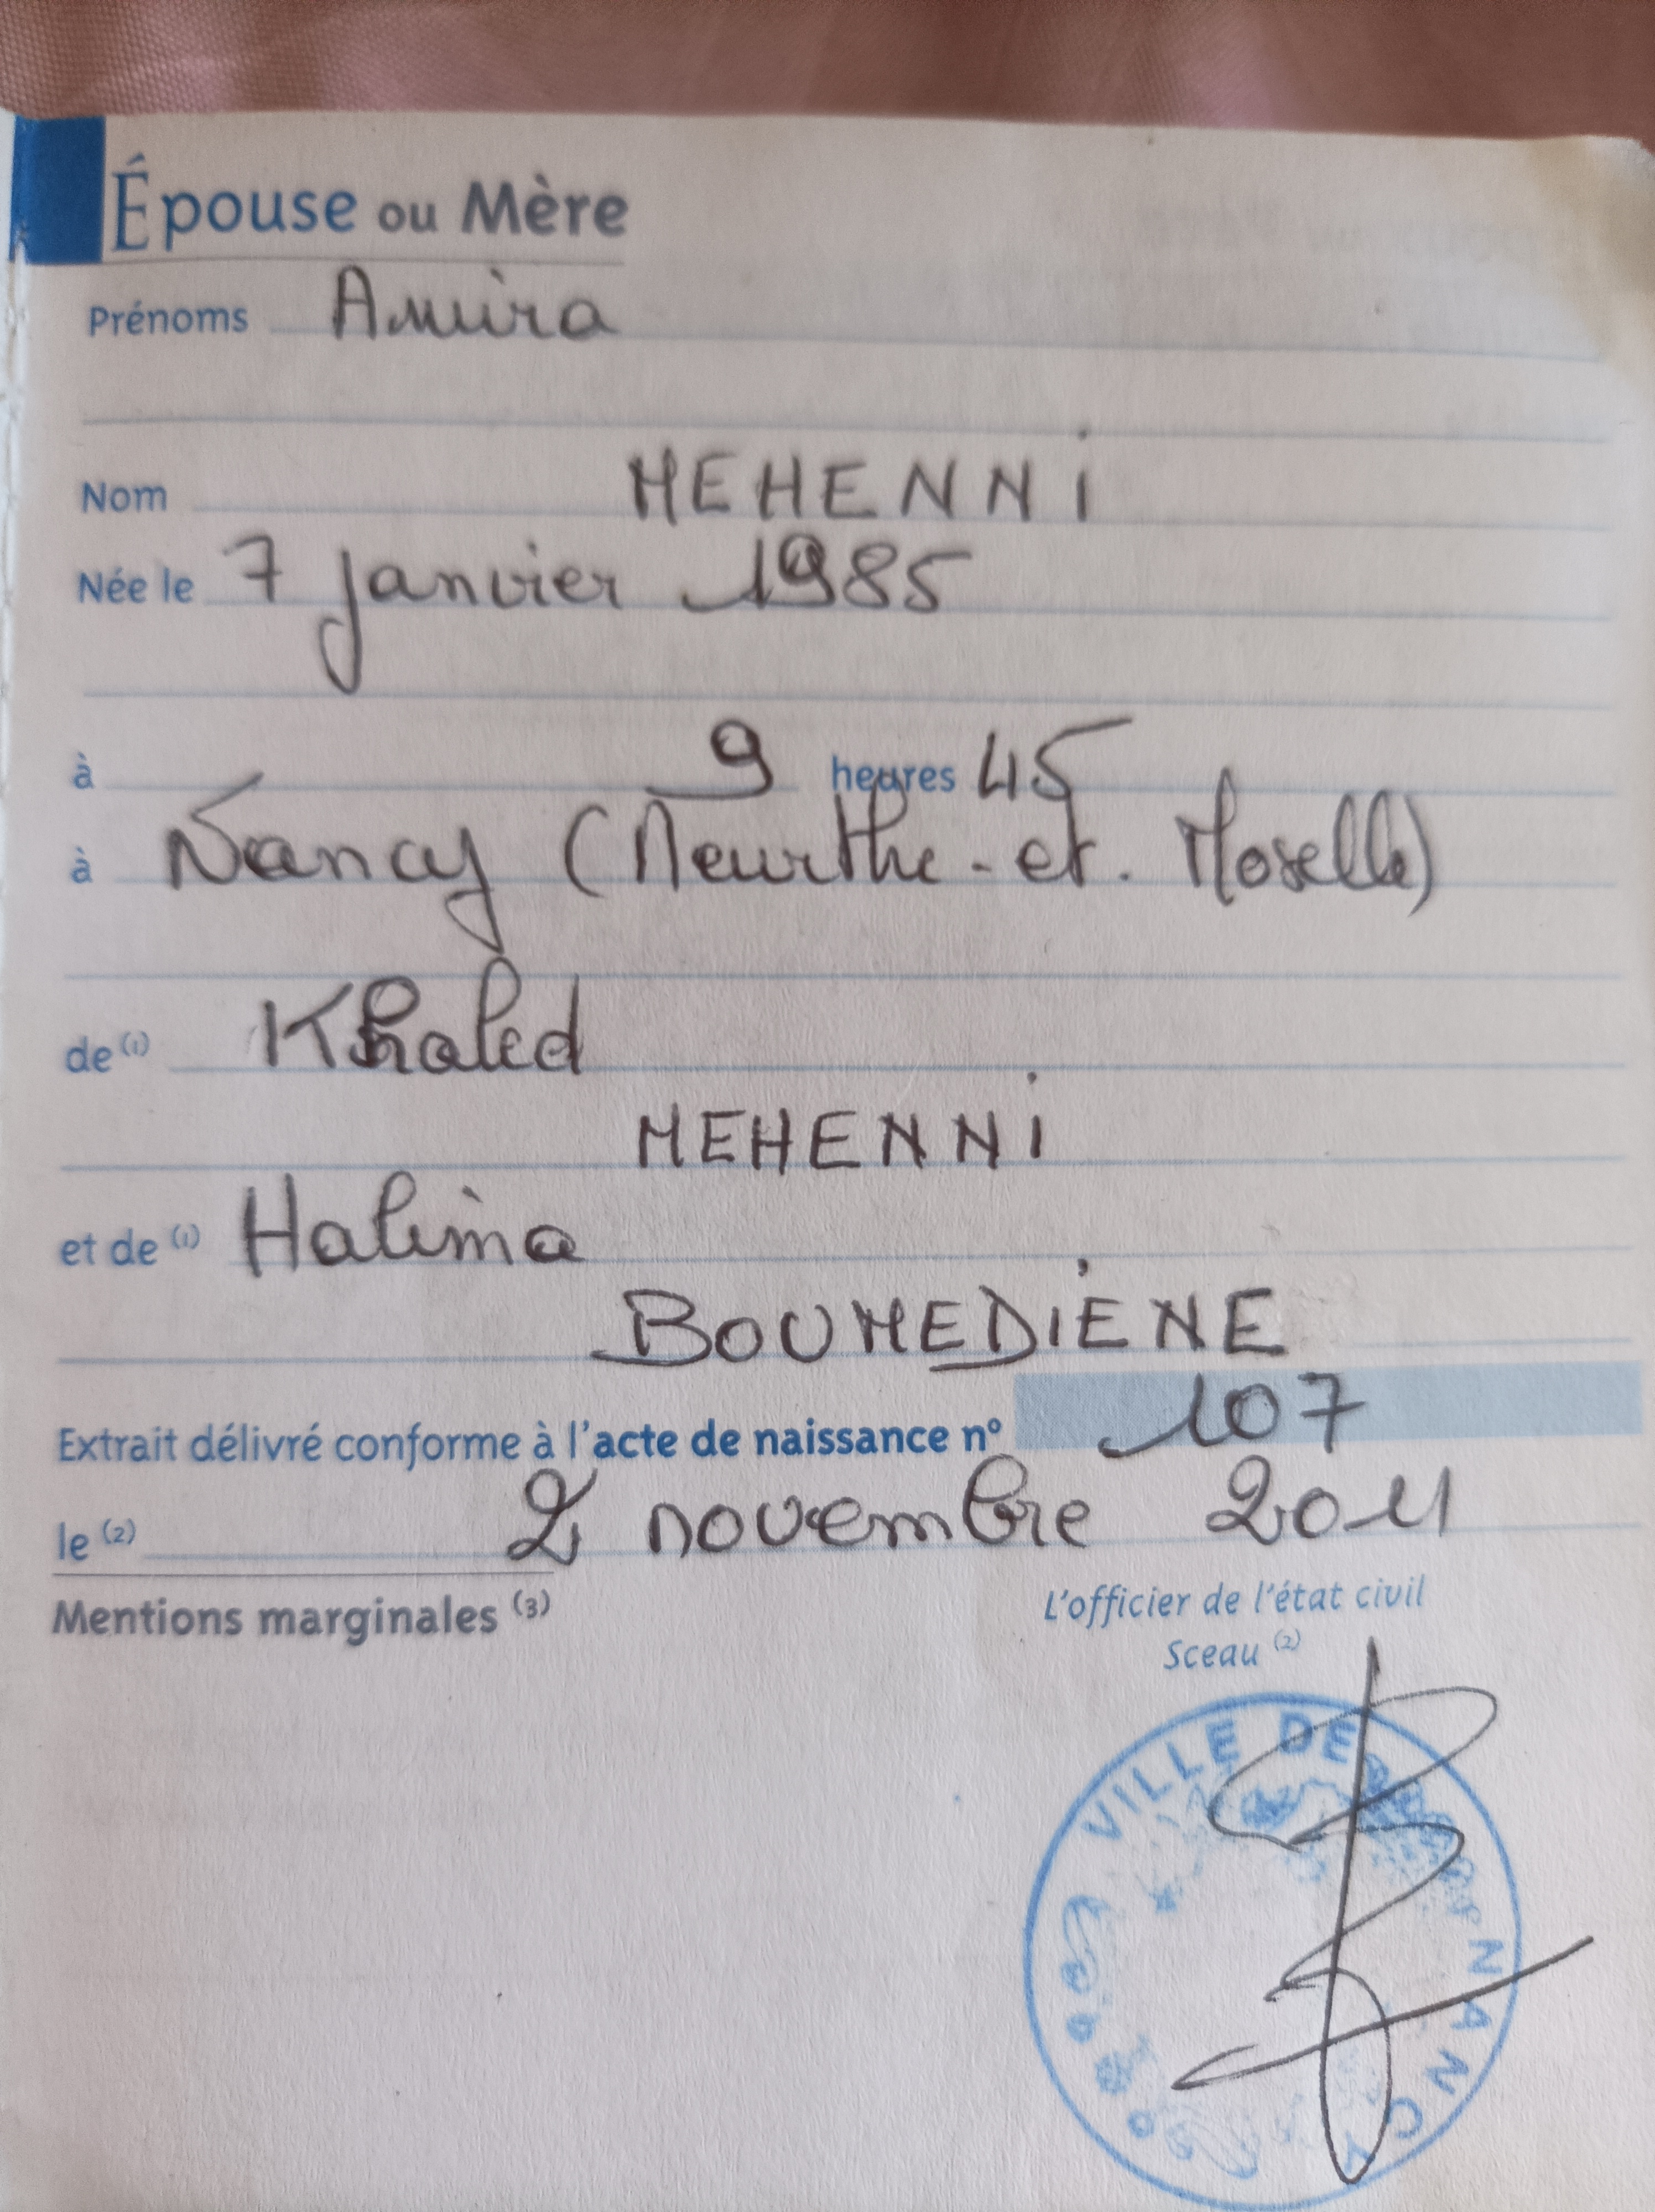 Épouse ou Mère
Prénoms Amira
Nom MEHENNi
Née le 7 janvier 1985
à 9 heures 45
à Nancy (Meurthe-et-Moselle)
de (1) Khaled
MEHENNi
et de (1) Halima
BOUMEDIENE
Extrait délivré conforme à l'acte de naissance n° 107
le (2) 2 novembre 2011
Mentions marginales (3)
L'officier de l'état civil
Sceau (2)
VILLE DE NANCY